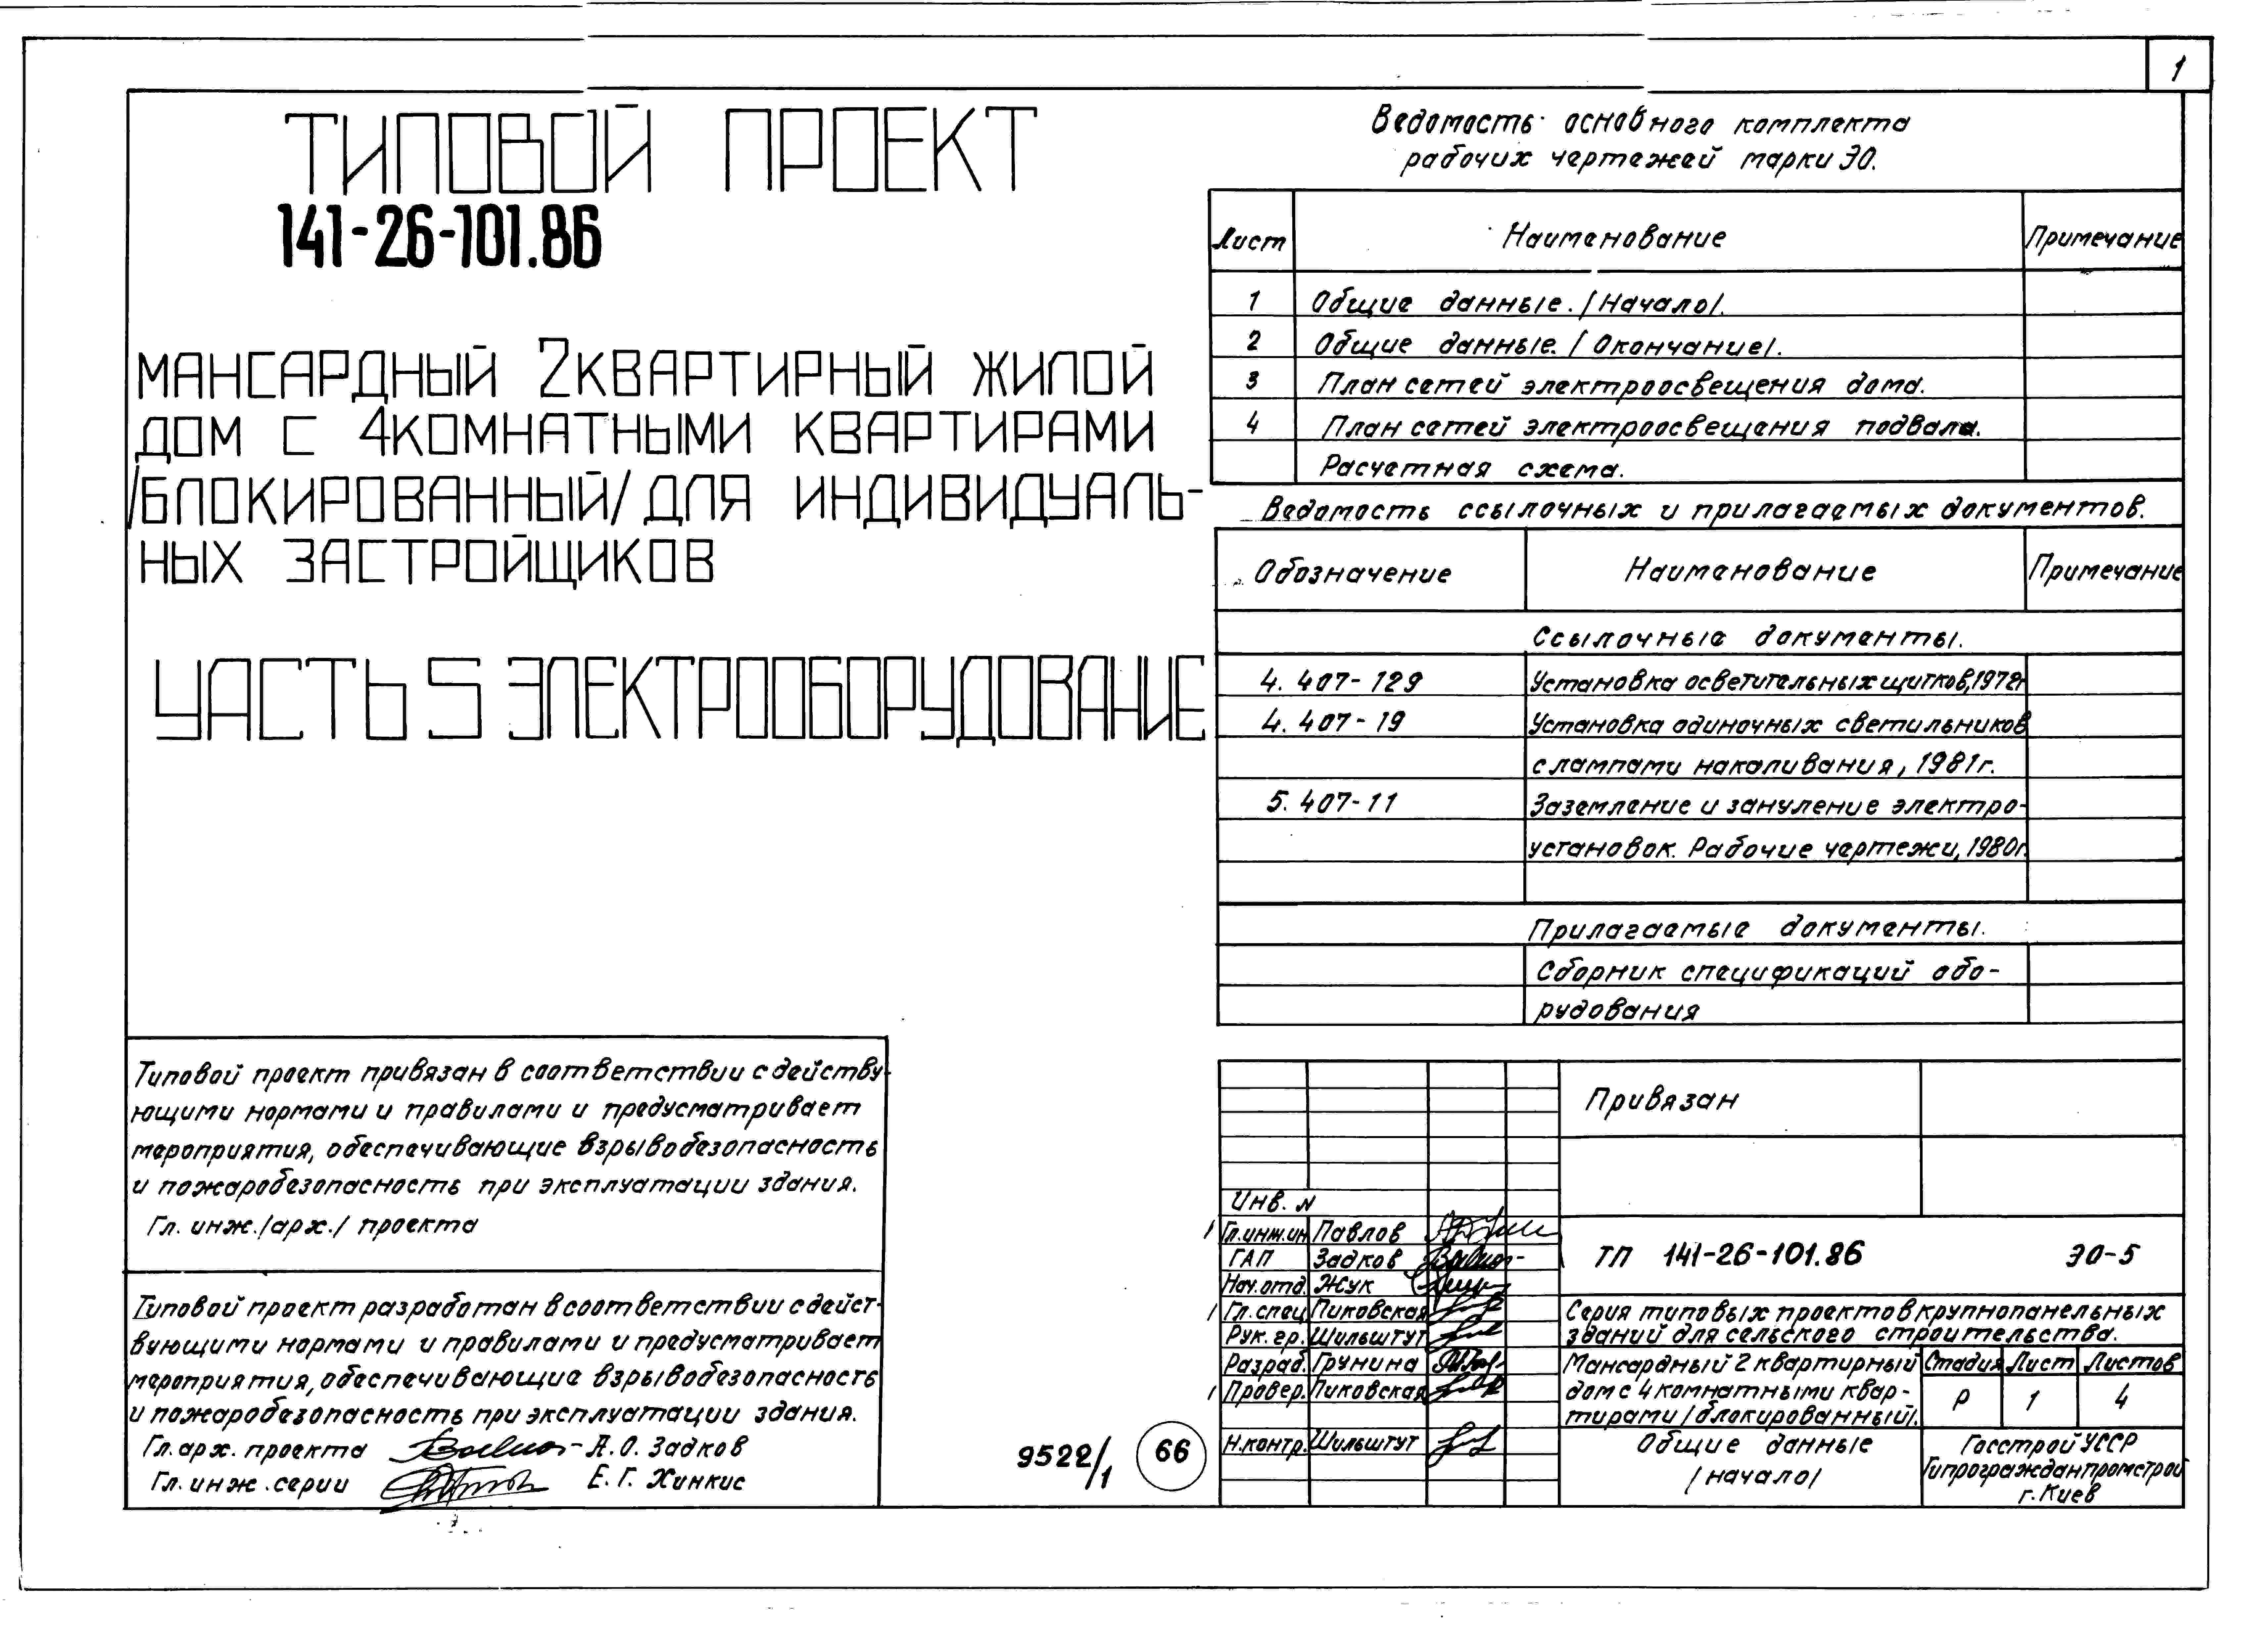 1
ТИПОВОЙ ПРОЕКТ
141-26-101.86
МАНСАРДНЫЙ 2КВАРТИРНЫЙ ЖИЛОЙ
ДОМ С 4КОМНАТНЫМИ КВАРТИРАМИ
/БЛОКИРОВАННЫЙ/ ДЛЯ ИНДИВИДУАЛЬ-
НЫХ ЗАСТРОЙЩИКОВ
ЧАСТЬ 5 ЭЛЕКТРООБОРУДОВАНИЕ
Типовой проект привязан в соответствии с действу-
ющими нормами и правилами и предусматривает
мероприятия, обеспечивающие взрывобезопасность
и пожаробезопасность при эксплуатации здания.
Гл. инж./арх./ проекта
Типовой проект разработан в соответствии с дейст-
вующими нормами и правилами и предусматривает
мероприятия, обеспечивающие взрывобезопасность
и пожаробезопасность при эксплуатации здания.
Гл. арх. проекта А. О. Задков
Гл. инж. серии Е. Г. Хинкис
9522/1 66
Ведомость основного комплекта
рабочих чертежей марки ЭО.
Лист Наименование Примечание
1 Общие данные. /Начало/.
2 Общие данные. /Окончание/.
3 План сетей электроосвещения дома.
4 План сетей электроосвещения подвала.
Расчетная схема.
Ведомость ссылочных и прилагаемых документов.
Обозначение Наименование Примечание
Ссылочные документы.
4. 407-129 Установка осветительных щитков, 1972г
4. 407-19 Установка одиночных светильников
с лампами накаливания, 1981г.
5. 407-11 Заземление и зануление электро-
установок. Рабочие чертежи, 1980г.
Прилагаемые документы.
Сборник спецификаций обо-
рудования
Привязан
Инв. N
Гл.инж.ин Павлов
ГАП Задков
Нач.отд. Жук
Гл.спец. Пиковская
Рук. гр. Шильштут
Разраб. Грунина
Провер. Пиковская
Н.контр. Шильштут
ТП 141-26-101.86 ЭО-5
Серия типовых проектов крупнопанельных
зданий для сельского строительства.
Мансардный 2 квартирный
дом с 4 комнатными квар-
тирами /блокированный/.
Стадия Лист Листов
Р 1 4
Общие данные
/начало/
Госстрой УССР
Гипрогражданпромстрой
г. Киев